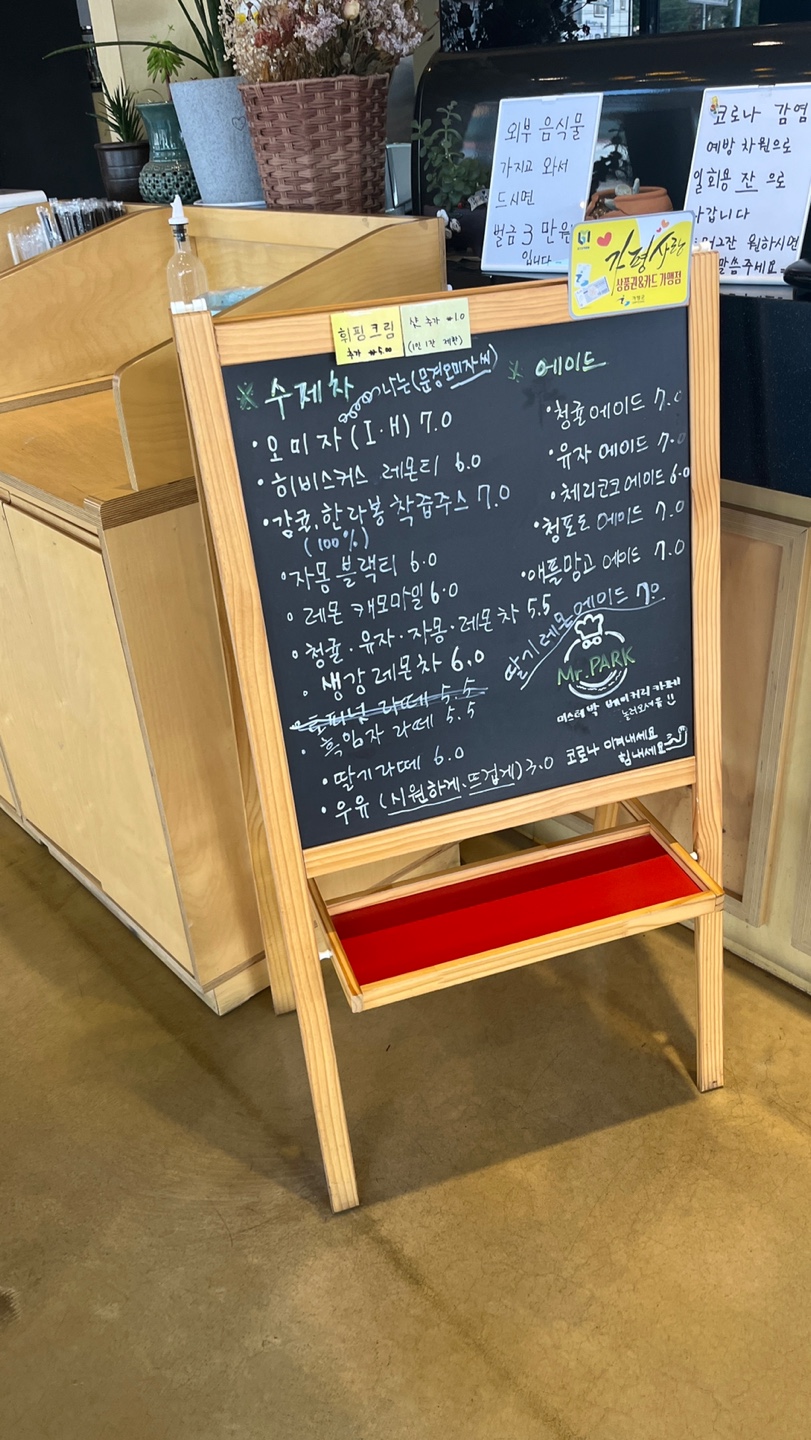 외부 음식물
가지고 와서
드시면
벌금 3 만원
입니다
코로나 감염
예방 차원으로
일회용 잔 으로
나갑니다
원하시면
말씀주세요
가평사랑
상품권&카드가맹점
가평군
휘핑크림
추가 ₩500
샷 추가 ₩1.0
(1인 1잔 제한)
※ 수제차
나는(문경오미자씨)
• 오미자(I·H) 7.0
• 히비스커스 레몬티 6.0
• 감귤, 한라봉 착즙주스 7.0
(100%)
• 자몽 블랙티 6.0
• 레몬 캐모마일 6.0
• 청귤·유자·자몽·레몬차 5.5
• 생강레몬차 6.0
라떼 5.5
• 흑임자 라떼 5.5
• 딸기라떼 6.0
• 우유 (시원하게·뜨겁게) 3.0
※ 에이드
• 청귤에이드 7.0
• 유자 에이드 7.0
• 체리코크에이드 6.0
• 청포도 에이드 7.0
• 애플망고 에이드 7.0
딸기레몬에이드 7.0
Mr. PARK
미스터박 베이커리카페
놀러오세용
코로나 이겨내세요
힘내세요